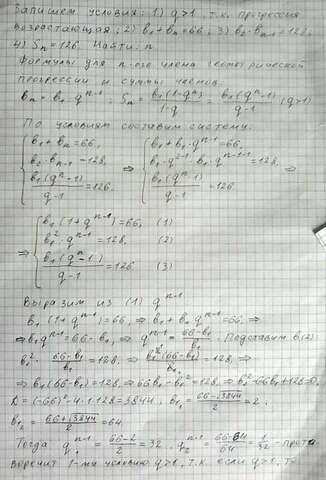 Запишем условия: 1) q>1, т.к. прогрессия
возрастающая; 2) b₁+bₙ=66; 3) b₂·bₙ₋₁=128,
4) Sₙ=126. Найти: n
Формулы для n-ого члена геометрической
прогрессии и суммы членов:
bₙ=b₁·qⁿ⁻¹; Sₙ=b₁(1-qⁿ)/(1-q)=b₁(qⁿ-1)/(q-1) (q>1)
По условиям составим систему:
{b₁+bₙ=66, ⇒ {b₁+b₁·qⁿ⁻¹=66,
b₂·bₙ₋₁=128, b₁·q²⁻¹·b₁·qⁿ⁻¹⁻¹=128, ⇒
b₁(qⁿ-1)/(q-1)=126. b₁(qⁿ-1)/(q-1)=126
⇒ {b₁(1+qⁿ⁻¹)=66, (1)
b₁²·qⁿ⁻¹=128, (2)
b₁(qⁿ-1)/(q-1)=126 (3)
Выразим из (1) qⁿ⁻¹
b₁(1+qⁿ⁻¹)=66, ⇒ b₁+b₁qⁿ⁻¹=66, ⇒
⇒ b₁qⁿ⁻¹=66-b₁, ⇒ qⁿ⁻¹=(66-b₁)/b₁. Подставим в(2)
b₁²·(66-b₁)/b₁=128, ⇒ b₁²(66-b₁)/b₁=128, ⇒
⇒ b₁(66-b₁)=128, ⇒ 66b₁-b₁²=128, ⇒ b₁²-66b₁+128=0.
D=(-66)²-4·1·128=3844, b₁₁=(66-√3844)/2=2.
b₁₂=(66+√3844)/2=64
Тогда q₁ⁿ⁻¹=(66-2)/2=32. q₂ⁿ⁻¹=(66-64)/64=1/32 - проти-
воречит 1-му условию q>1, т.к. если q>1, то